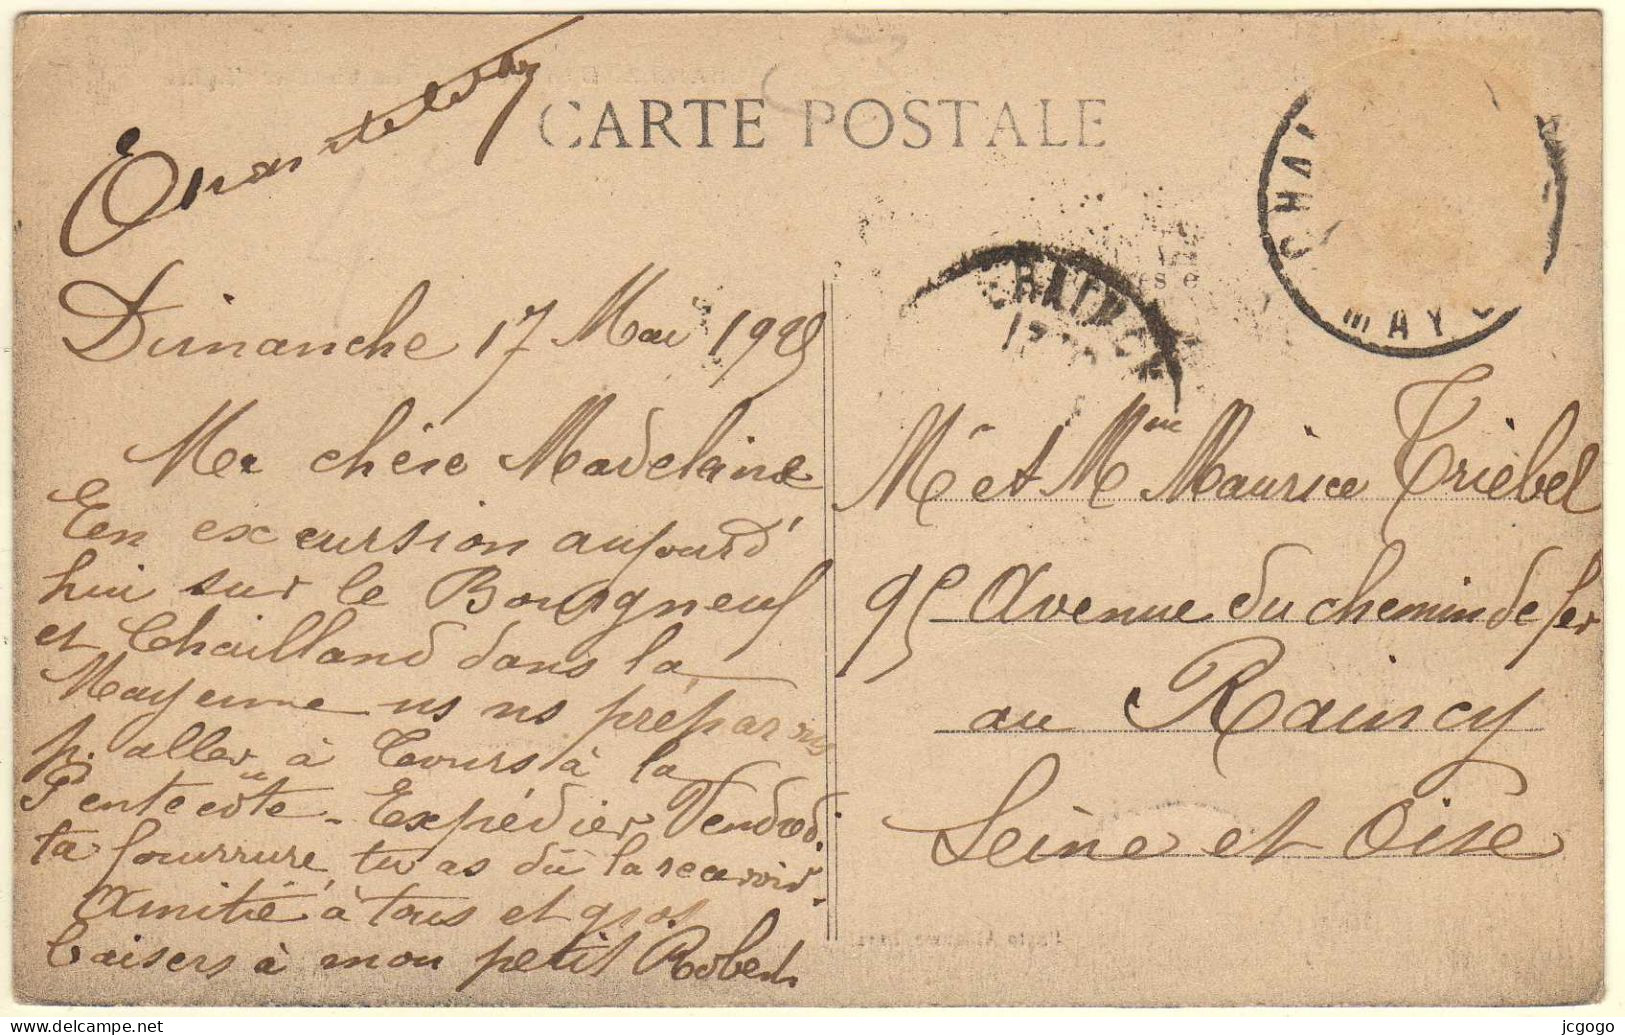 CARTE POSTALE
Dimanche 17 Mai 1925
Ma chère Madelaine
En excursion aujourd'
hui sur le Bourgneuf
et Chailland dans la
Mayenne ns ns préparons
p. aller à Tours à la
Pentecôte - Expédier Vendredi
ta fourrure, tu as dû la recevoir -
Amitié à tous et gros
baisers à mon petit Robert
CHA
MAY
Mr et Mme Maurice Triebel
95 Avenue du chemin de fer
au Raincy
Seine et Oise
jcgogo
www.delcampe.net